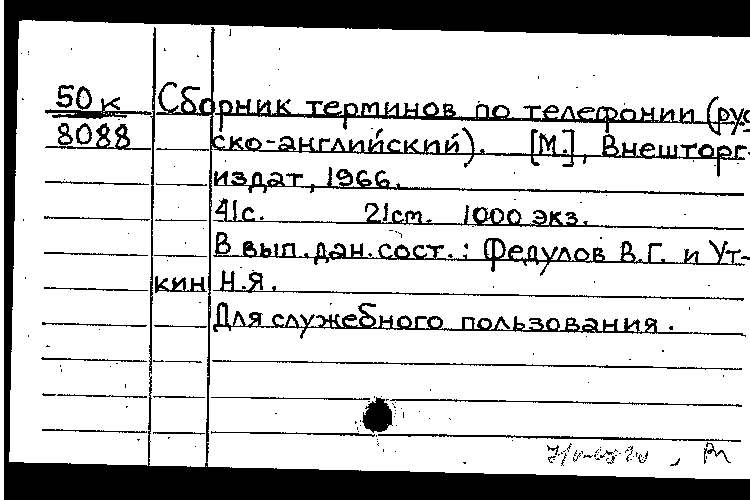 50к Сборник терминов по телефонии (рус
8088 ско-английский). [М.], Внешторг-
издат, 1966.
41с. 21cm. 1000 экз.
В вып.дан.сост.: Федулов В.Г. и Ут-
кин Н.Я.
Для служебного пользования.